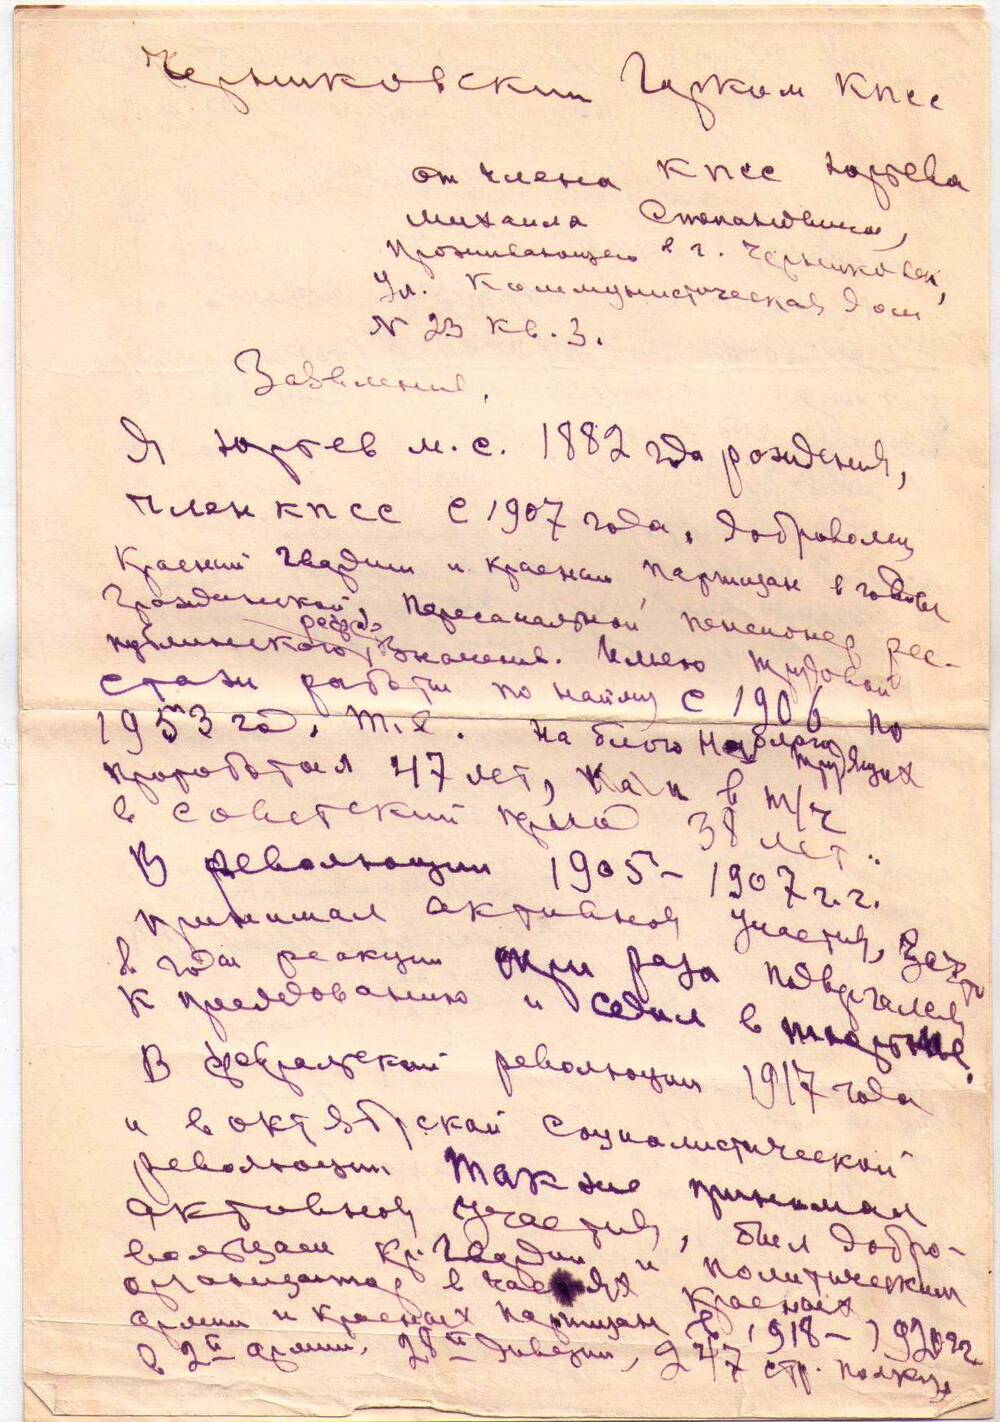 Черниковский Горком КПСС
от члена КПСС Юртева
Михаила Степановича,
Проживающего в г. Черниковск,
Ул. Коммунистическая дом
N 23 кв. 3.
Заявление.
Я Юртев М.С. 1882 года рождения,
член КПСС с 1907 года, доброволец
Красний гвардии и красный партизан в годы
Гражданской, персональной пенсионер рес-
публинского значения. Имею трудовой
стаж работы по найму с 1906 по
1953 год, т.е. на благо трудящих
проработал 47 лет, в т/ч
в советский период 38 лет.
В революции 1905-1907 г.г.
принимал активной участия, за что
в годы реакции три раза подвергался
к преследованию и седил в тюрьме.
В февральский революции 1917 года
и в октябрской социалистической
революции также принимал
активной участия, был добро-
вольцам кр. гвардии и политическим
организатор в частях красных
армии и красных партизан в 1918-1920 гг.
в 2й армии, 28й дивезии, 247 стр. полку,